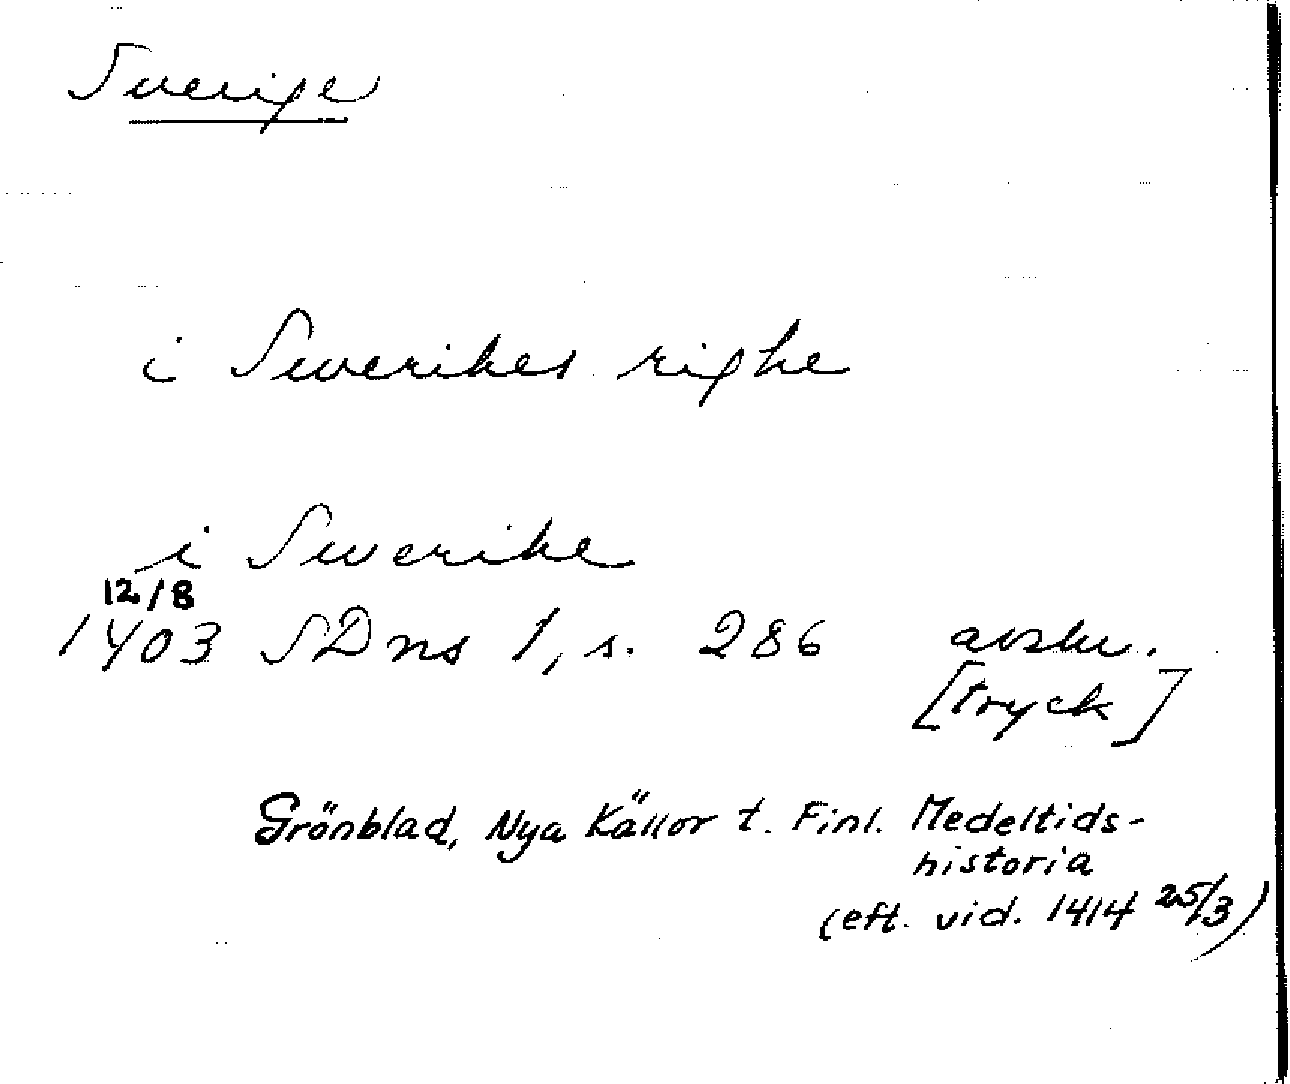 Sverige
i Swerikes righe
i Swerike
12/8
1403 SDns 1, s. 286 avskr.
[tryck]
Grönblad, Nya Källor t. Finl. Medeltids-
historia
(eft. vid. 1414 25/3)